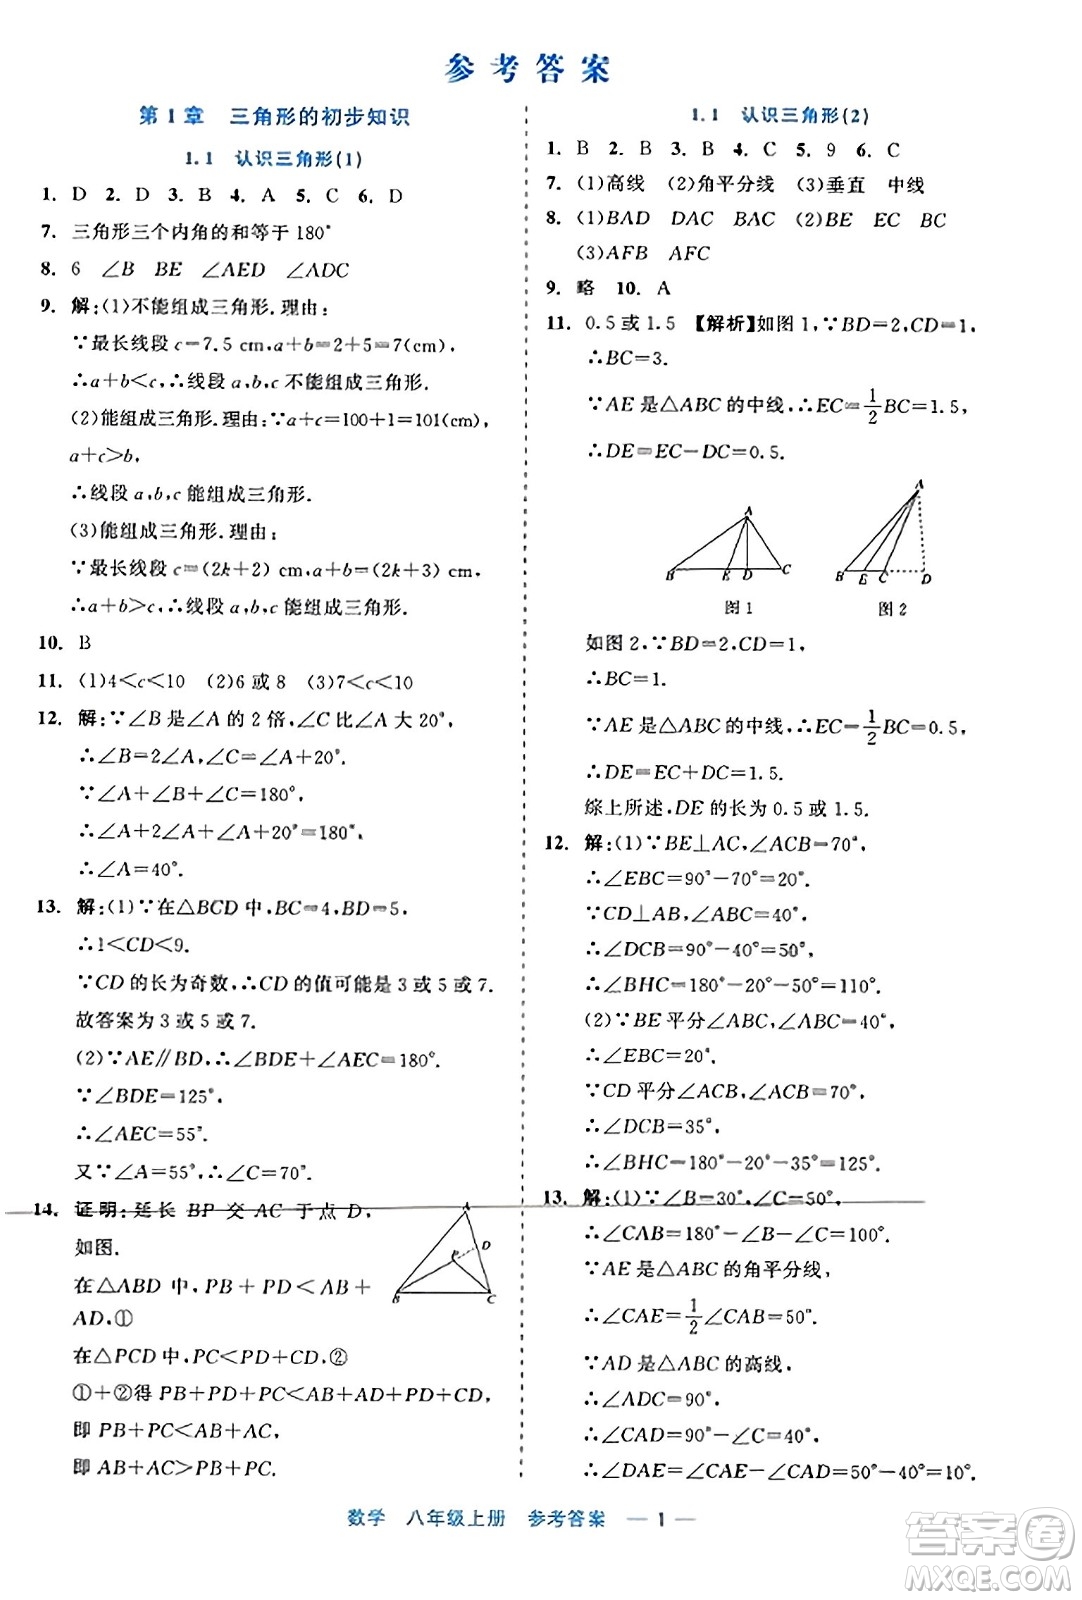 参考答案
第1章 三角形的初步知识
1.1 认识三角形(1)
1. D 2. D 3. B 4. A 5. C 6. D
7. 三角形三个内角的和等于180°
8. 6 ∠B BE ∠AED ∠ADC
9. 解:(1)不能组成三角形.理由:
∵最长线段c=7.5 cm,a+b=2+5=7(cm),
∴a+b<c,∴线段a,b,c不能组成三角形.
(2)能组成三角形.理由:∵a+c=100+1=101(cm),
a+c>b,
∴线段a,b,c能组成三角形.
(3)能组成三角形.理由:
∵最长线段c=(2k+2) cm,a+b=(2k+3) cm,
∴a+b>c,∴线段a,b,c能组成三角形.
10. B
11. (1)4<c<10 (2)6或8 (3)7<c<10
12. 解:∵∠B是∠A的2倍,∠C比∠A大20°,
∴∠B=2∠A,∠C=∠A+20°.
∵∠A+∠B+∠C=180°,
∴∠A+2∠A+∠A+20°=180°.
∴∠A=40°.
13. 解:(1)∵在△BCD中,BC=4,BD=5,
∴1<CD<9.
∵CD的长为奇数,∴CD的值可能是3或5或7.
故答案为3或5或7.
(2)∵AE∥BD,∴∠BDE+∠AEC=180°.
∵∠BDE=125°,
∴∠AEC=55°.
又∵∠A=55°,∴∠C=70°.
14. 证明:延长BP交AC于点D,
如图.
在△ABD中,PB+PD<AB+
AD,①
在△PCD中,PC<PD+CD,②
①+②得PB+PD+PC<AB+AD+PD+CD,
即PB+PC<AB+AC,
即AB+AC>PB+PC.
A
P
D
B
C
1.1 认识三角形(2)
1. B 2. B 3. B 4. C 5. 9 6. C
7. (1)高线 (2)角平分线 (3)垂直 中线
8. (1)BAD DAC BAC (2)BE EC BC
(3)AFB AFC
9. 略 10. A
11. 0.5或1.5 【解析】如图1,∵BD=2,CD=1,
∴BC=3.
∵AE是△ABC的中线,∴EC=1/2BC=1.5,
∴DE=EC-DC=0.5.
A
B E D C
图1
A
B E C D
图2
如图2,∵BD=2,CD=1,
∴BC=1.
∵AE是△ABC的中线,∴EC=1/2BC=0.5,
∴DE=EC+DC=1.5.
综上所述,DE的长为0.5或1.5.
12. 解:(1)∵BE⊥AC,∠ACB=70°,
∴∠EBC=90°-70°=20°.
∵CD⊥AB,∠ABC=40°,
∴∠DCB=90°-40°=50°.
∴∠BHC=180°-20°-50°=110°.
(2)∵BE平分∠ABC,∠ABC=40°,
∴∠EBC=20°.
∵CD平分∠ACB,∠ACB=70°,
∴∠DCB=35°.
∴∠BHC=180°-20°-35°=125°.
13. 解:(1)∵∠B=30°,∠C=50°,
∴∠CAB=180°-∠B-∠C=100°.
∵AE是△ABC的角平分线,
∴∠CAE=1/2∠CAB=50°.
∵AD是△ABC的高线,
∴∠ADC=90°.
∴∠CAD=90°-∠C=40°.
∴∠DAE=∠CAE-∠CAD=50°-40°=10°.
数学 八年级上册 参考答案 — 1 —
答案卷
MXQE.COM